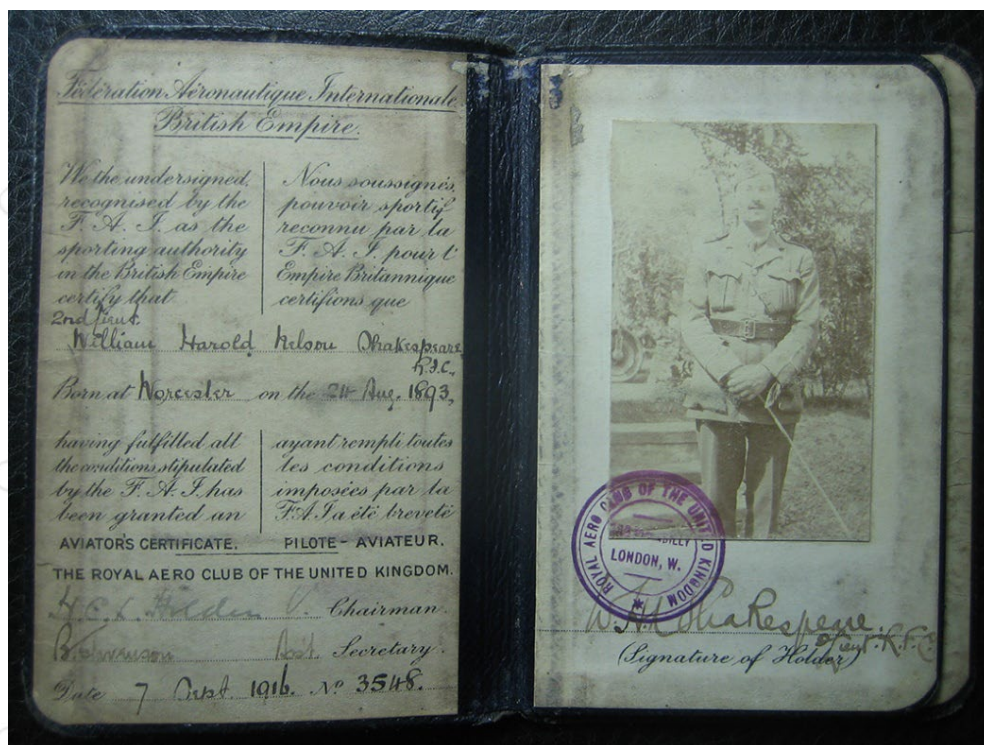 Fédération Aéronautique Internationale
British Empire.
We the undersigned,
recognised by the
F. A. I. as the
sporting authority
in the British Empire
certify that
Nous soussignés,
pouvoir sportif
reconnu par la
F. A. I. pour l'
Empire Britannique
certifions que
2nd Lieut.
William Harold Nelson Shakespeare
Born at Worcester on the 24 Aug. 1893,
having fulfilled all
the conditions stipulated
by the F. A. I. has
been granted an
AVIATOR'S CERTIFICATE.
ayant rempli toutes
les conditions
imposées par la
F.A.I a été breveté
PILOTE-AVIATEUR.
THE ROYAL AERO CLUB OF THE UNITED KINGDOM.
Chairman.
Secretary.
Date 7 Sept. 1916. Nº 3548.
ROYAL AERO CLUB OF THE UNITED KINGDOM
LONDON, W.
W. H. N. Shakespeare
Lieut. R.F.C.
(Signature of Holder)